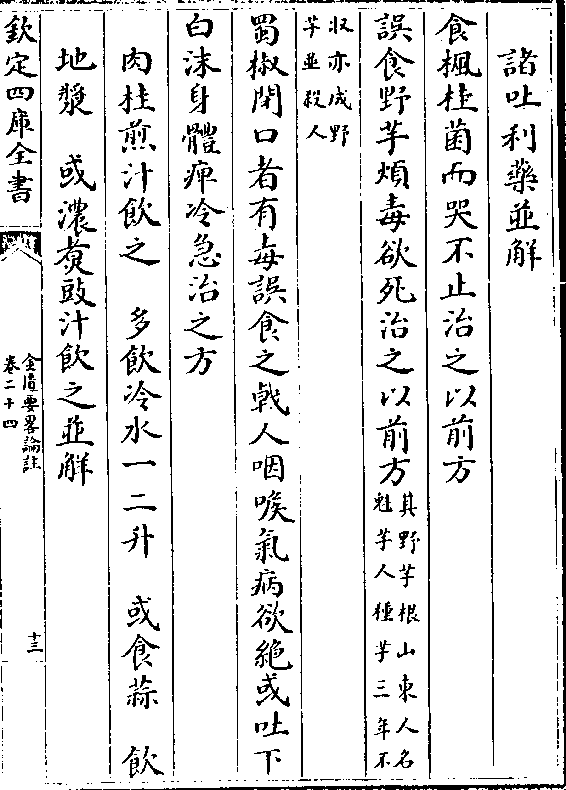 諸吐利藥並解
食楓柱菌而哭不止治之以前方
誤食野芋煩毒欲死治之以前方其野芋根山東人名
魁芋人種芋三年不
收亦成野
芋並殺人
蜀椒閉口者有毒誤食之戟人咽喉氣病欲絶或吐下
白沫身體痺冷急治之方
肉桂煎汁飲之 多飲冷水一二升 或食蒜 飲
地漿 或濃煑豉汁飲之並解
欽定四庫全書
金匱要畧論註
卷二十四
十三